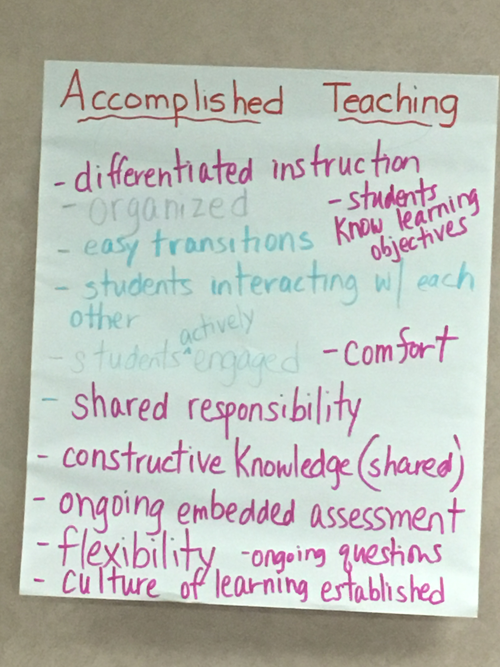 Accomplished Teaching
- differentiated instruction
- organized
- students
know learning
objectives
- easy transitions
- students interacting w/ each
other
- students ^actively engaged
- comfort
- shared responsibility
- constructive knowledge (shared)
- ongoing embedded assessment
- flexibility - ongoing questions
- culture of learning established